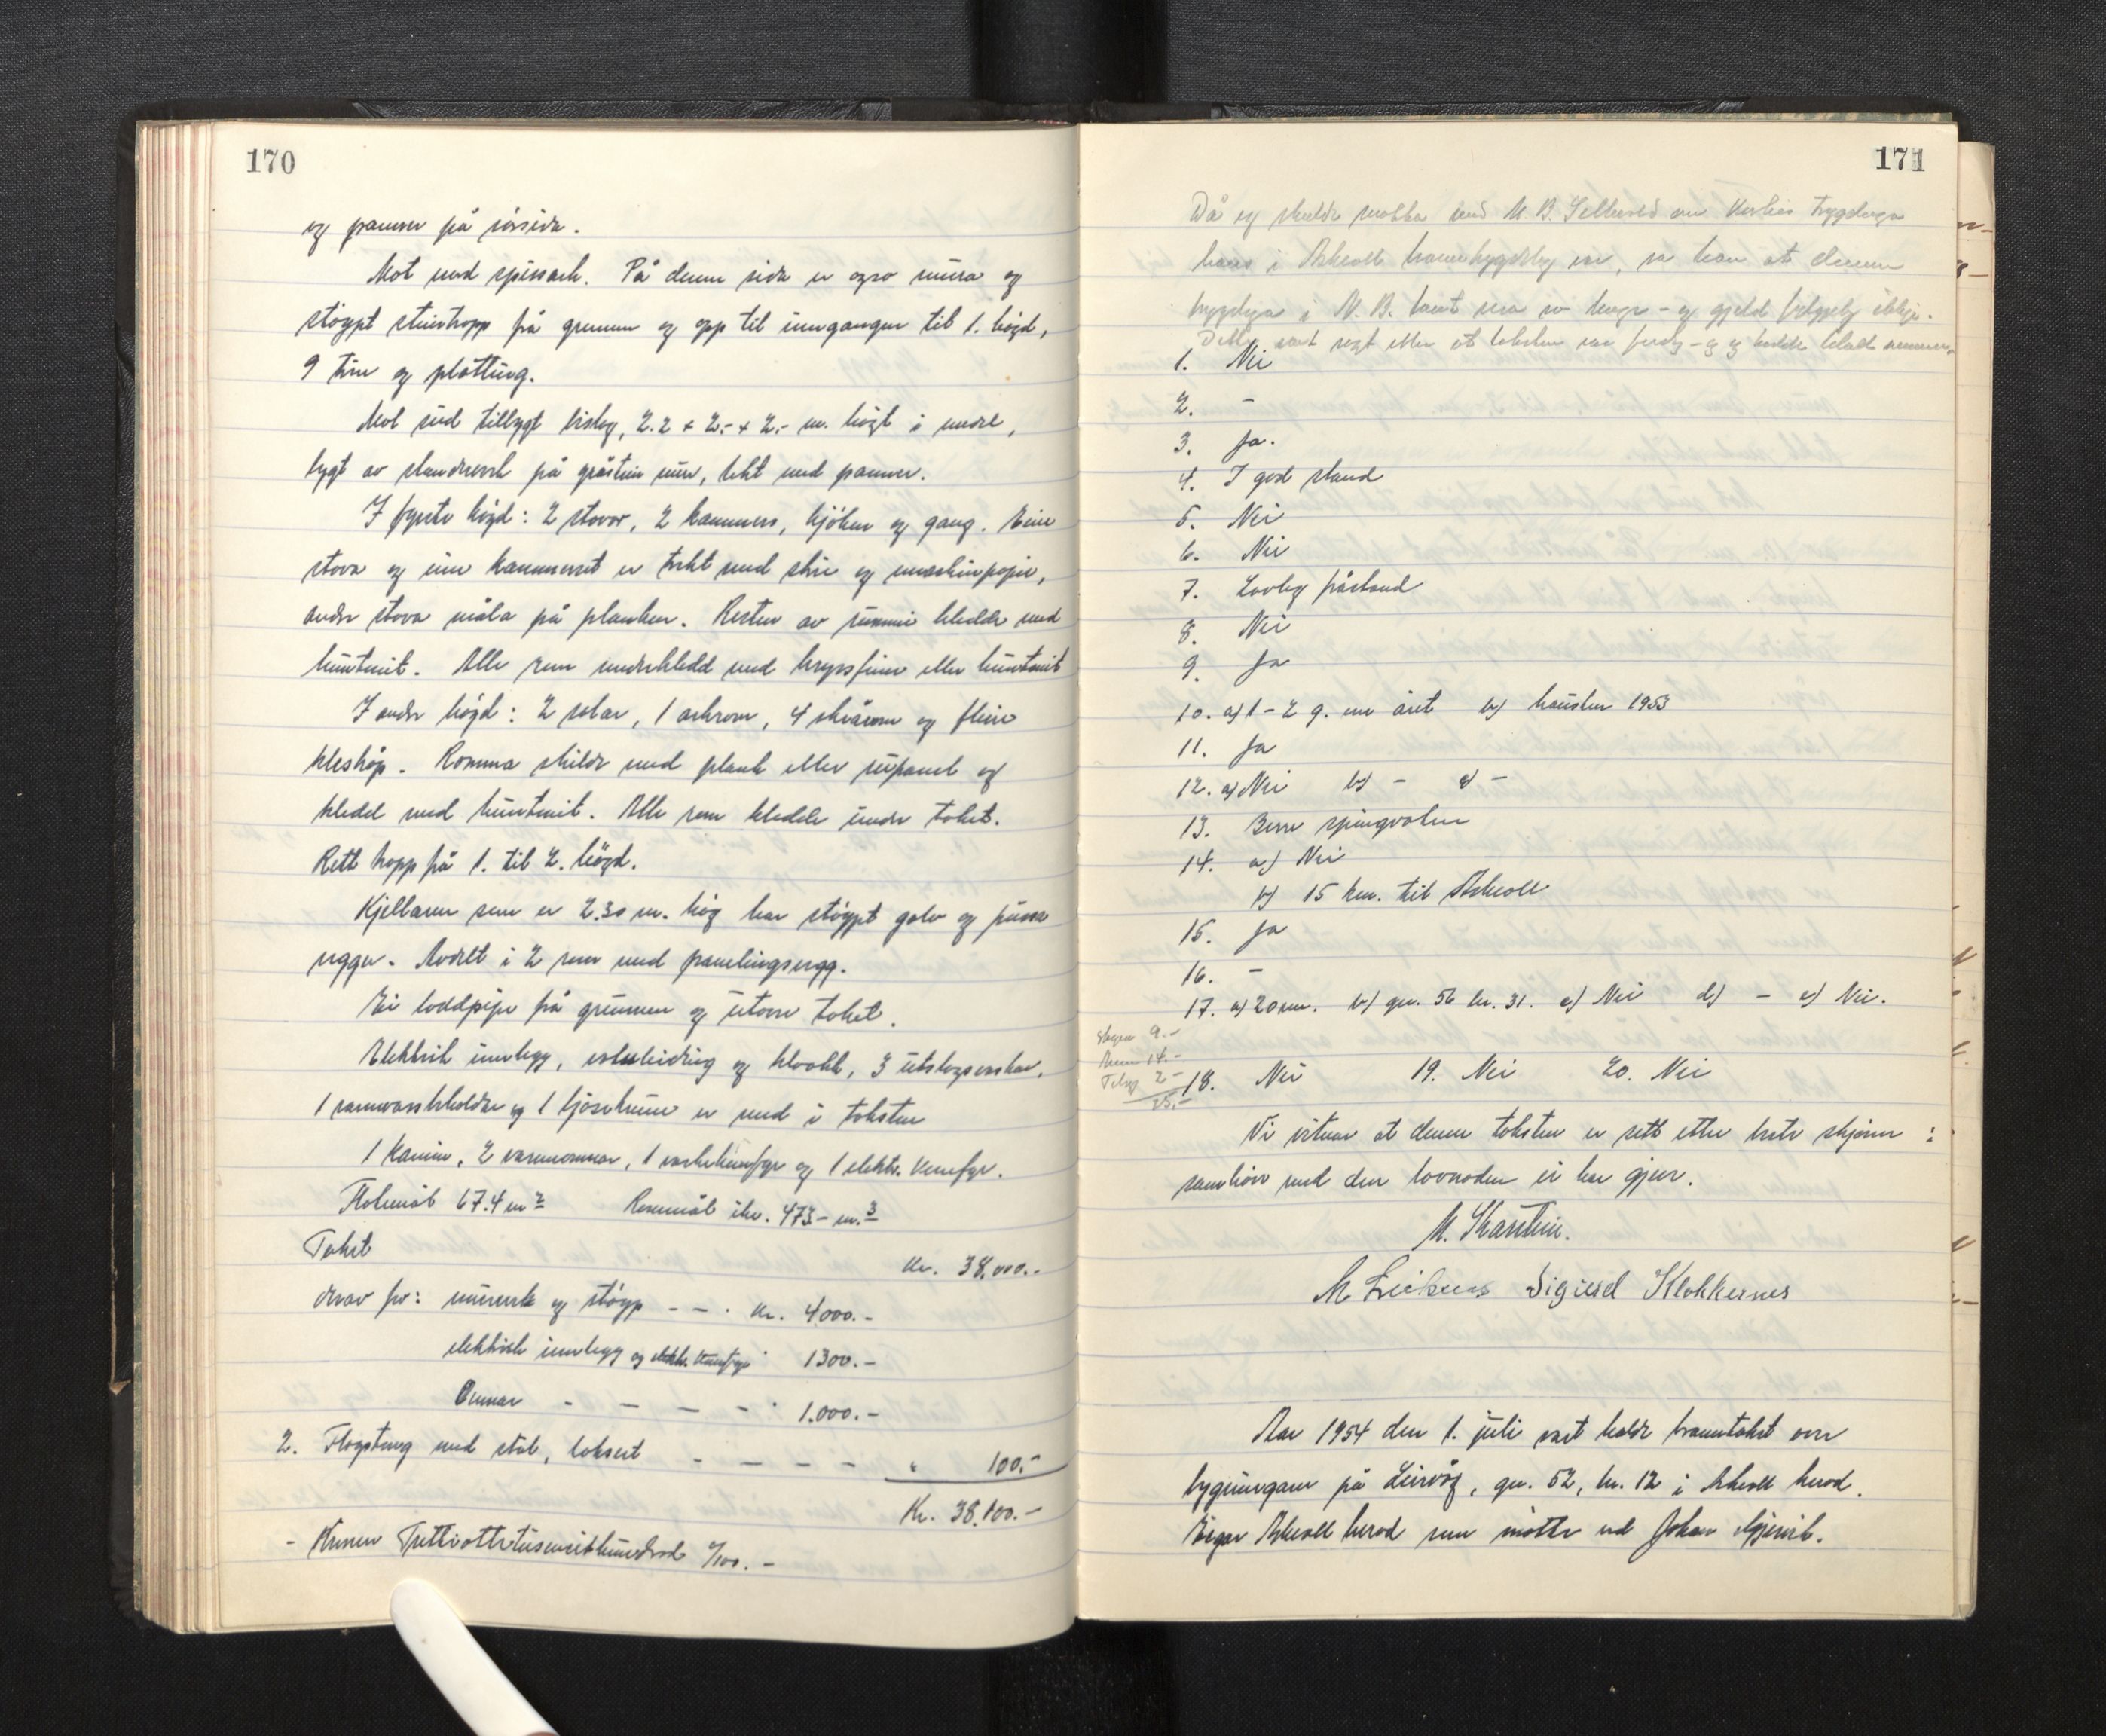 170
og pannor på sørsida.
Mot nord spissark. På denne sida er ogso mura og
støypt steintropp frå grunnen og opp til inngangen til 1. høgd,
9 trin og plattung.
Mot sud tillbygt bislag, 2.2 + 2.- + 2.- m. høgt i medel,
bygt av standverk på gråstein mur, tekt med pannor.
I fyrste høgd: 2 stovor, 2 kammers, kjøken og gang. Eine
stova og eine kammerset er trekt med strie og maskinpapir,
andre stova måla på planken. Resten av rummi kledde med
huntonit. Alle rom underkledd med kryssfiner eller huntonit
I andre høgd: 2 salar, 1 arkrom, 4 skrårom og fleire
kleskåp. Romma skilde med plank eller rupanel og
kledd med huntonit. Alle rom kledde under taket.
Rett tropp frå 1. til 2. høgd.
Kjellaren som er 2.30 m. høg har støypt golv og pussa
vegger. Avdelt i 2 rom med panelingsvegg.
Ei loddpipe frå grunnen og utover taket.
Elektrisk innlegg, vassleidning og kloakk, 3 utslagsvaskar,
1 varmvassbeholdar og 1 tjørekum er med i taksten
1 kamin, 2 varmeomnar, 1 vaskekomfyr og 1 elektr. komfyr.
Flatemål 67.4 m² Rommål ihr. 473 - m.³
Takst Kr. 38.000.-
Herav for: murverk og støyp - - . Kr. 4000.-
elektrisk innlegg og elektr. komfyr " 1300.-
Omnar - - - - " 1.000.-
2. Flagstong med stol, taksert - - - - " 100.-
Kr. 38.100.-
- Kroner Trettiåttetuseneitthundrad 0/100. -
171
Då eg skulde snakka med M. B. om trygdinga
hans i Askvoll branntrygdelag var, sa han at denne
trygdinga i N. B. tant vera so lenge - og gjeld ikkje.
Dette vart sagt etter at taksten var ferdig - og eg hadde
1. Nei
2. -
3. Ja.
4. I god stand
5. Nei
6. Nei
7. Lovleg fråstand
8. Nei
9. Ja
10. a) 1 - 2 g. um året b) hausten 1953
11. Ja
12. a) Nei b) - c) -
13. Berre springvatn
14. a) Nei
b) 15 km. til Askvoll
15. Ja
16. -
17. a) 20 mm. b) gn. 56 br. 31. c) Nei d) - e) Nei.
9.-
14.-
2.-
25.-
18. Nei 19. Nei 20. Nei
Vi vitnar at denne taksten er sett etter beste skjønn i
samhøve med den lovnaden vi har gjeve.
M. Skarstein.
Sigurd Klokkernes
Aar 1954 den 1. juli vart halde branntakst over
bygningane på Leirvåg, gn. 52, br. 12 i Askvoll herad.
Eigar Askvoll herad som møtte ved Johan